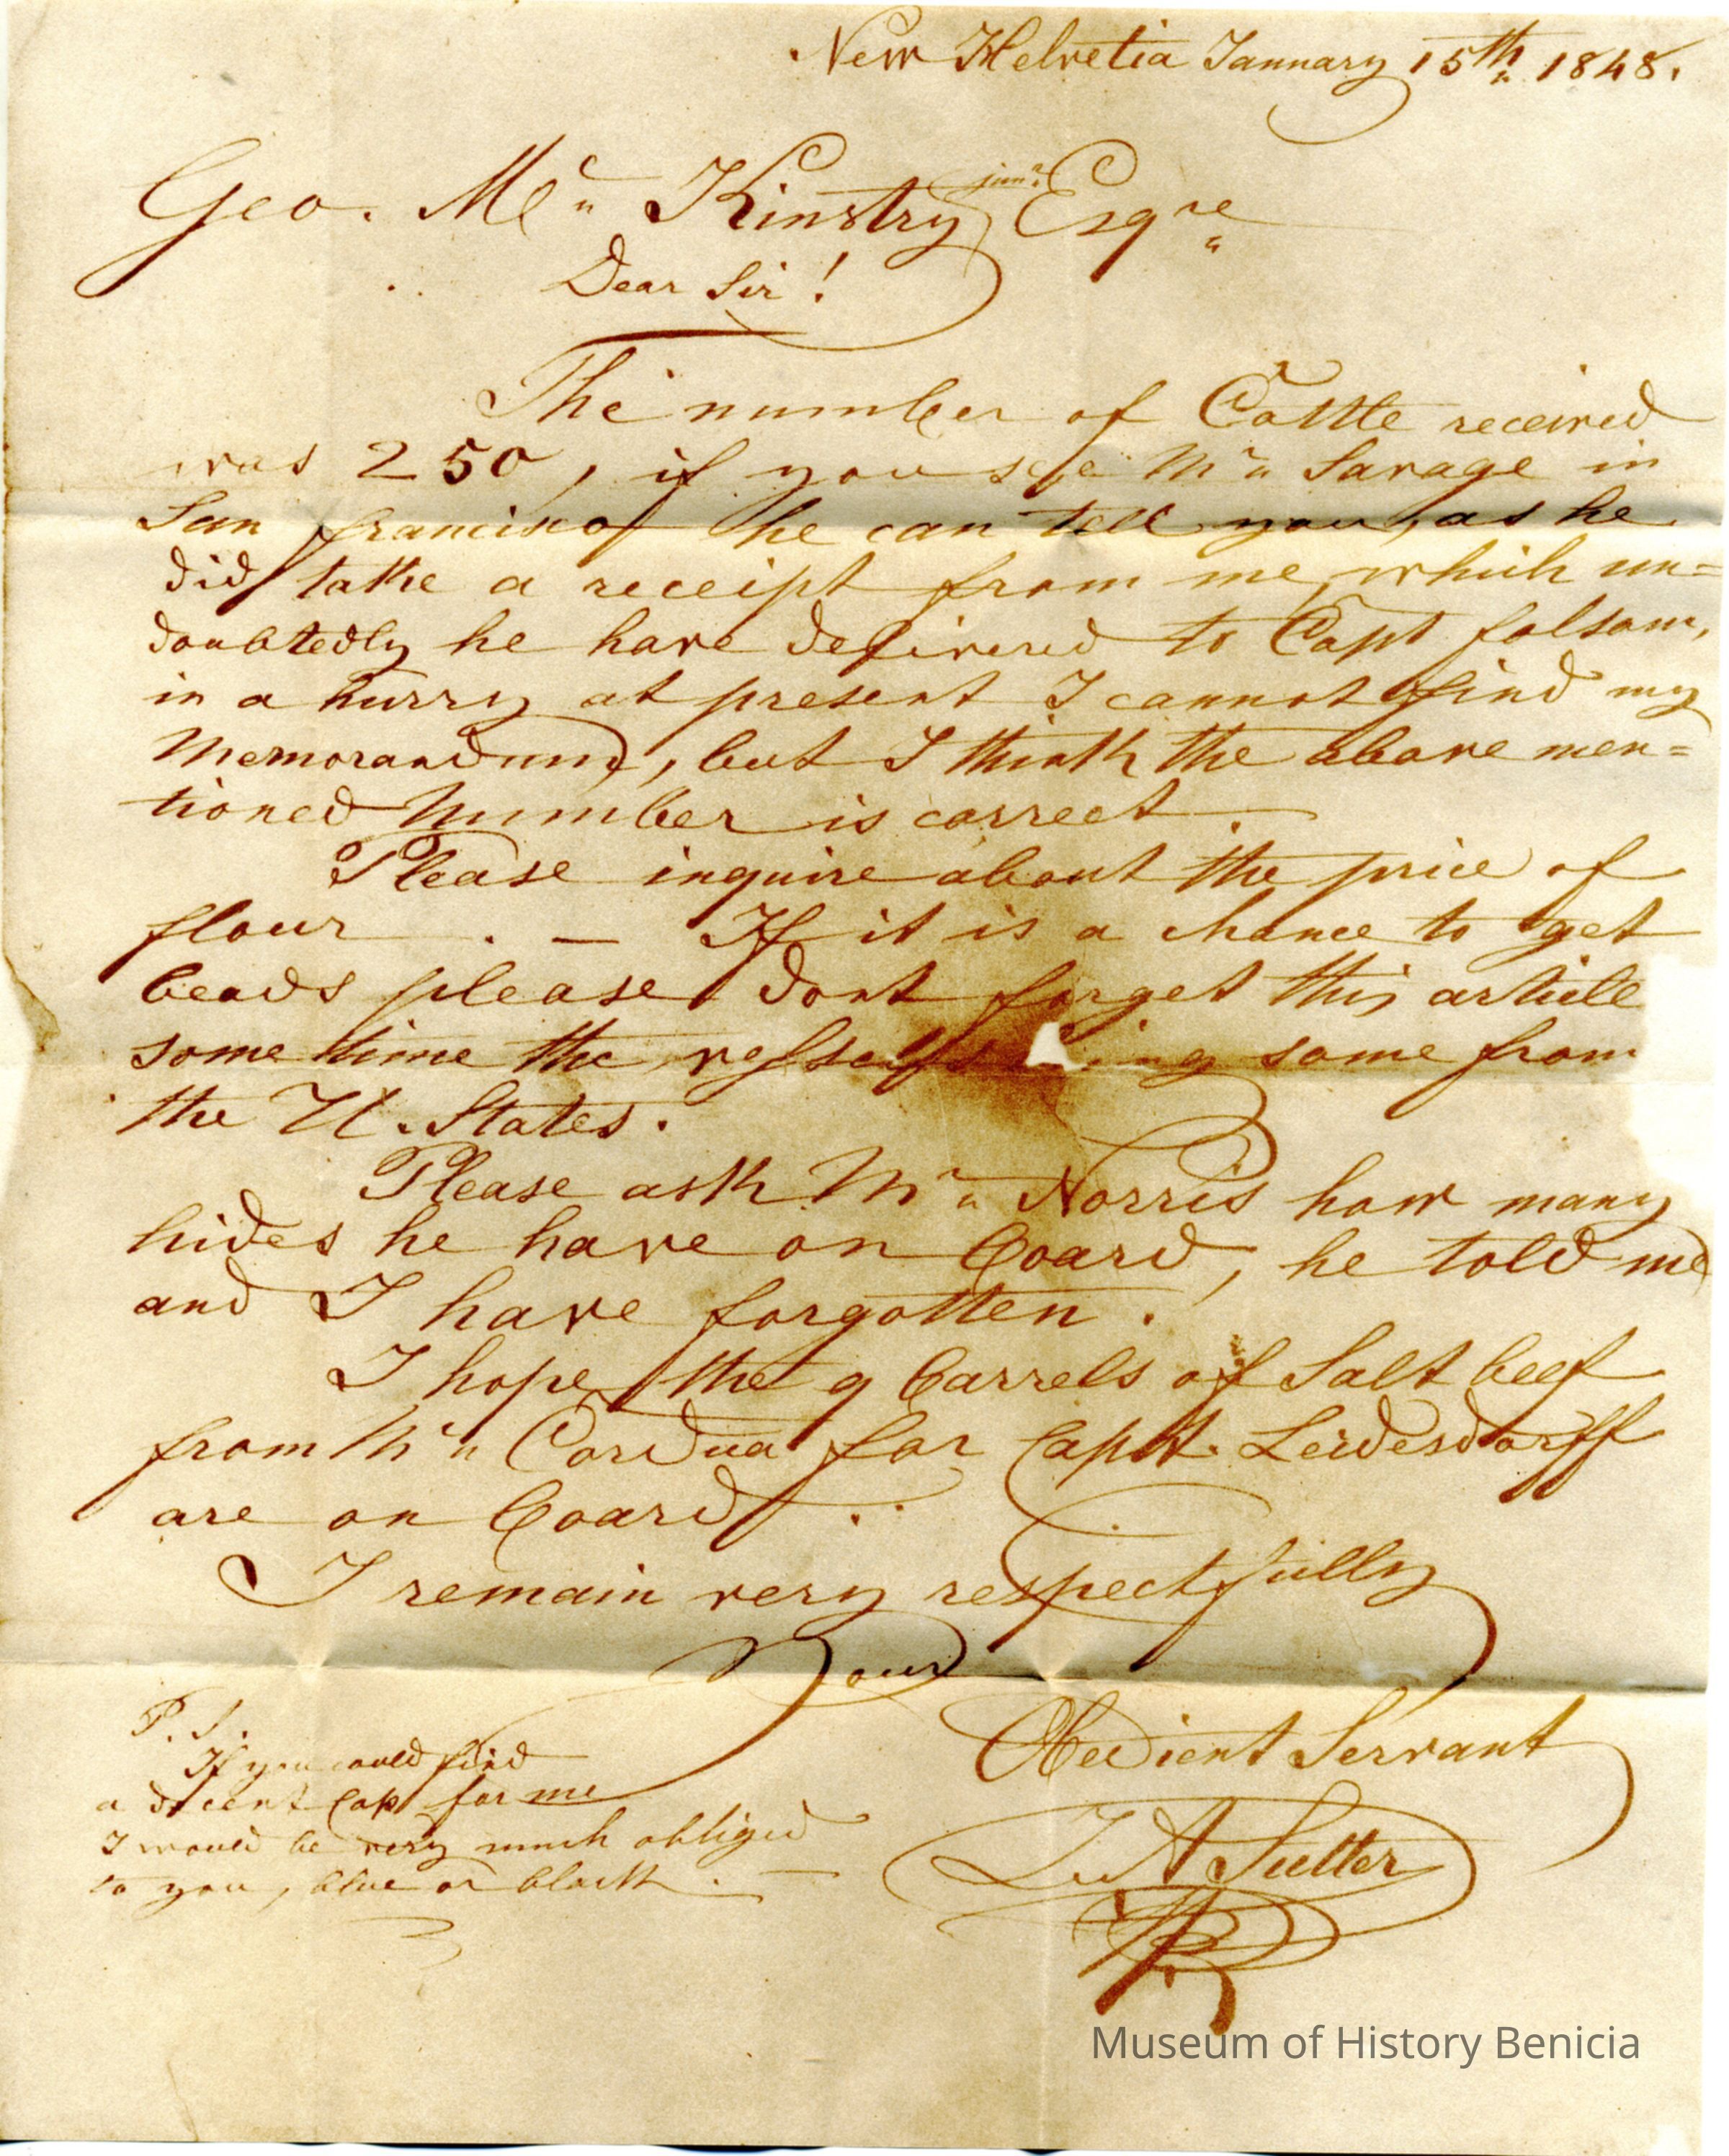 New Helvetia January 15th 1848.
Geo. Mc Kinstry junr. Esqre
Dear Sir!
The number of Cattle received
was 250, if you see Mr Savage in
San francisco he can tell you, as he
did take a receipt from me, which un=
doubtedly he have delivered to Capt folsom,
in a hurry at present I cannot find my
Memorandum, but I think the above men=
tioned Number is correct.
Please inquire about the price of
flour . — If it is a chance to get
beads please dont forget this article
some time the vessels ing some from
the U. States.
Please ask Mr Norris how many
hides he have on board, he told me
and I have forgotten.
I hope the 9 barrels of Salt beef
from Mr Cordua for Capt. Leidesdorff
are on board.
I remain very respectfully
Your
Obedient Servant
J. A Sutter
P. S.
If you could find
a decent Cap for me
I would be very much obliged
to you, blue or black. —
Museum of History Benicia